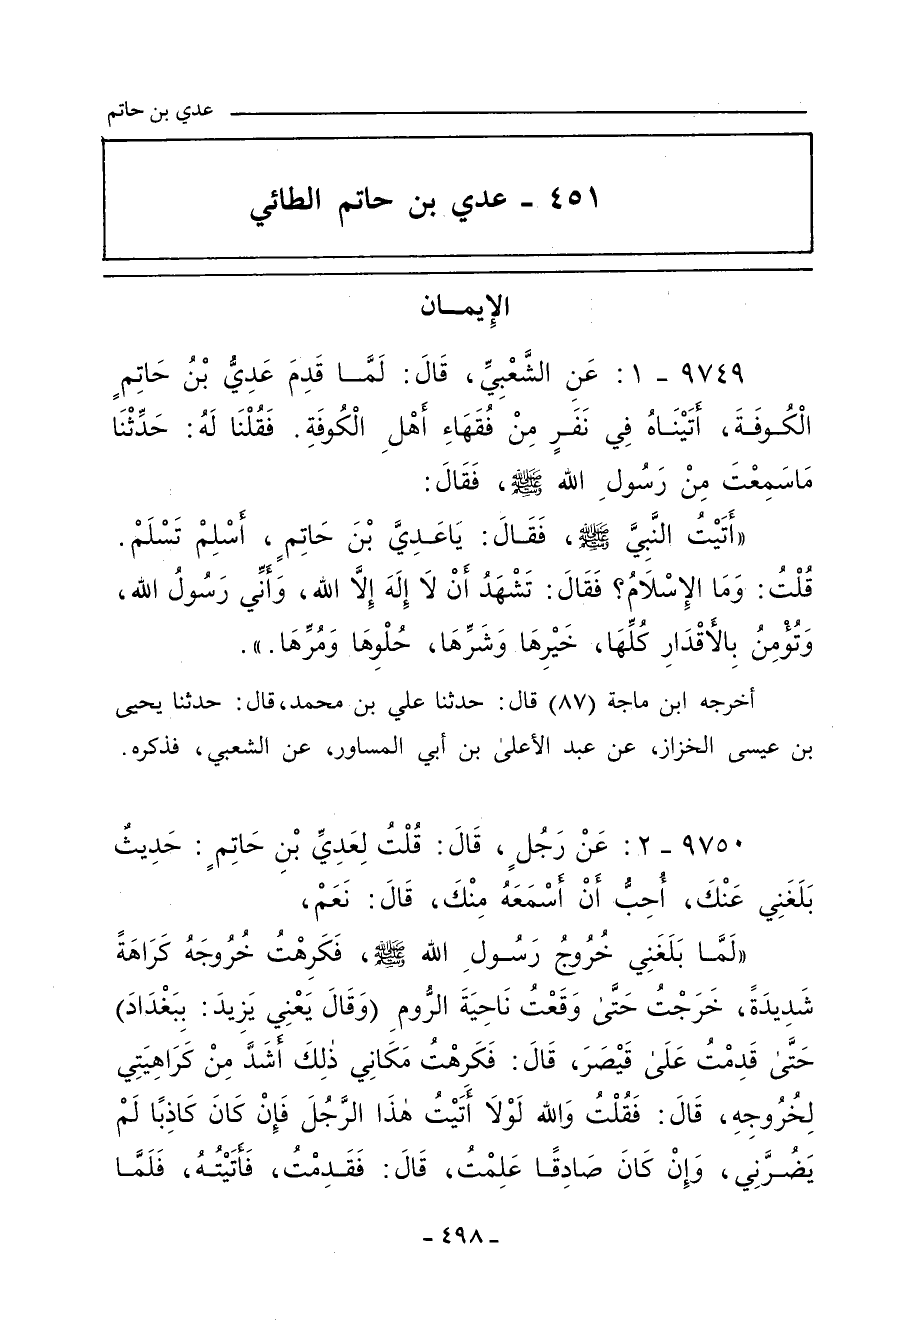 عدي بن حاتم
٤٥١ - عدي بن حاتم الطائي
الإِيمــان
٩٧٤٩ - ١: عَنِ الشَّعْبِيِّ، قَالَ: لَمَّــا قَدِمَ عَدِيُّ بْنُ حَاتِمٍ
الْكُــوفَــةَ، أَتَيْنَـاهُ فِي نَفَـرٍ مِنْ فُقَهَاءِ أَهْلِ الْكُوفَةِ. فَقُلْنَا لَهُ: حَدِّثْنَا
مَاسَمِعْتَ مِنْ رَسُولِ الله ﷺ، فَقَالَ:
«أَتَيْتُ النَّبِيَّ ﷺ، فَقَـالَ: يَاعَـدِيَّ بْنَ حَاتِمٍ، أَسْلِمْ تَسْلَمْ.
قُلْتُ: وَمَا الإِسْلَامُ؟ فَقَالَ: تَشْهَدُ أَنْ لَا إِلَهَ إِلَّا الله، وَأَنِّي رَسُولُ الله،
وَتُؤْمِنُ بِالأَقْدَارِ كُلِّهَا، خَيْرِهَا وَشَرِّهَا، حُلْوِهَا وَمُرِّهَا.».
أخرجه ابن ماجة (٨٧) قال: حدثنا علي بن محمد،قال: حدثنا يحيى
بن عيسى الخزاز، عن عبد الأعلىٰ بن أبي المساور، عن الشعبي، فذكره.
٩٧٥٠ - ٢: عَنْ رَجُلٍ، قَالَ: قُلْتُ لِعَدِيِّ بْنِ حَاتِمٍ: حَدِيثٌ
بَلَغَنِي عَنْكَ، أُحِبُّ أَنْ أَسْمَعَهُ مِنْكَ، قَالَ: نَعَمْ،
«لَمَّـا بَلَغَنِي خُرُوجُ رَسُـولِ الله ﷺ، فَكَرِهْتُ خُرُوجَهُ كَرَاهَةً
شَدِيدَةً، خَرَجْتُ حَتَّىٰ وَقَعْتُ نَاحِيَةَ الرُّومِ (وَقَالَ يَعْنِي يَزِيدَ: بِبَغْدَادَ)
حَتَّىٰ قَدِمْتُ عَلَىٰ قَيْصَرَ، قَالَ: فَكَرِهْتُ مَكَانِي ذٰلِكَ أَشَدَّ مِنْ كَرَاهِيَتِي
لِخُرُوجِهِ، قَالَ: فَقُلْتُ وَالله لَوْلَا أَتَيْتُ هٰذَا الرَّجُلَ فَإِنْ كَانَ كَاذِبًا لَمْ
يَضُـرَّنِي، وَإِنْ كَانَ صَادِقًـا عَلِمْتُ، قَالَ: فَقَـدِمْتُ، فَأَتَيْتُـهُ، فَلَمَّـا
- ٤٩٨ -